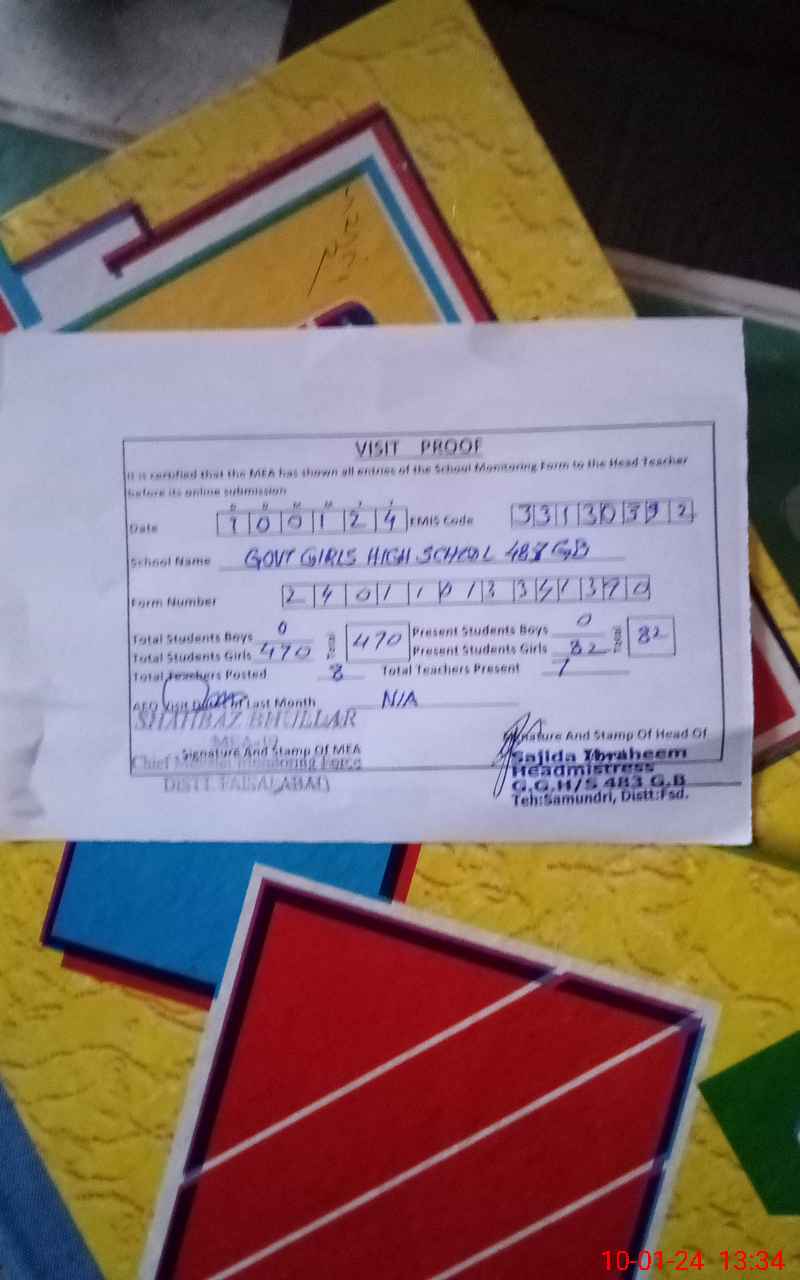 VISIT PROOF
It is certified that the MEA has shown all entries of the School Monitoring Form to the Head Teacher
before its online submission
D D M M Y Y
Date 1 0 0 1 2 4 EMIS Code 3 3 1 3 0 3 9 2
School Name GOVT GIRLS HIGH SCHOOL 483 GB
Form Number 2 4 0 1 1 0 1 3 3 4 1 3 9 0
Total Students Boys 0 Total 470 Present Students Boys 0 Total 82
Total Students Girls 470 Present Students Girls 82
Total Teachers Posted 8 Total Teachers Present 7
AEO Visit Date of Last Month N/A
SHAHBAZ BHULLAR
Signature And Stamp Of MEA Signature And Stamp Of Head Of
Chief Minister Monitoring Force
DISTT. FAISALABAD
Sajida Ibraheem
Headmistress
G.G.H/S 483 G.B
Teh:Samundri, Distt:Fsd.
10-01-24 13:34